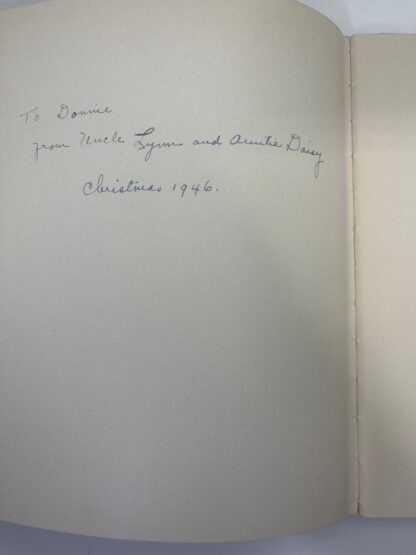 To Donnie
from Uncle Lynn and Auntie Daisy
Christmas 1946.